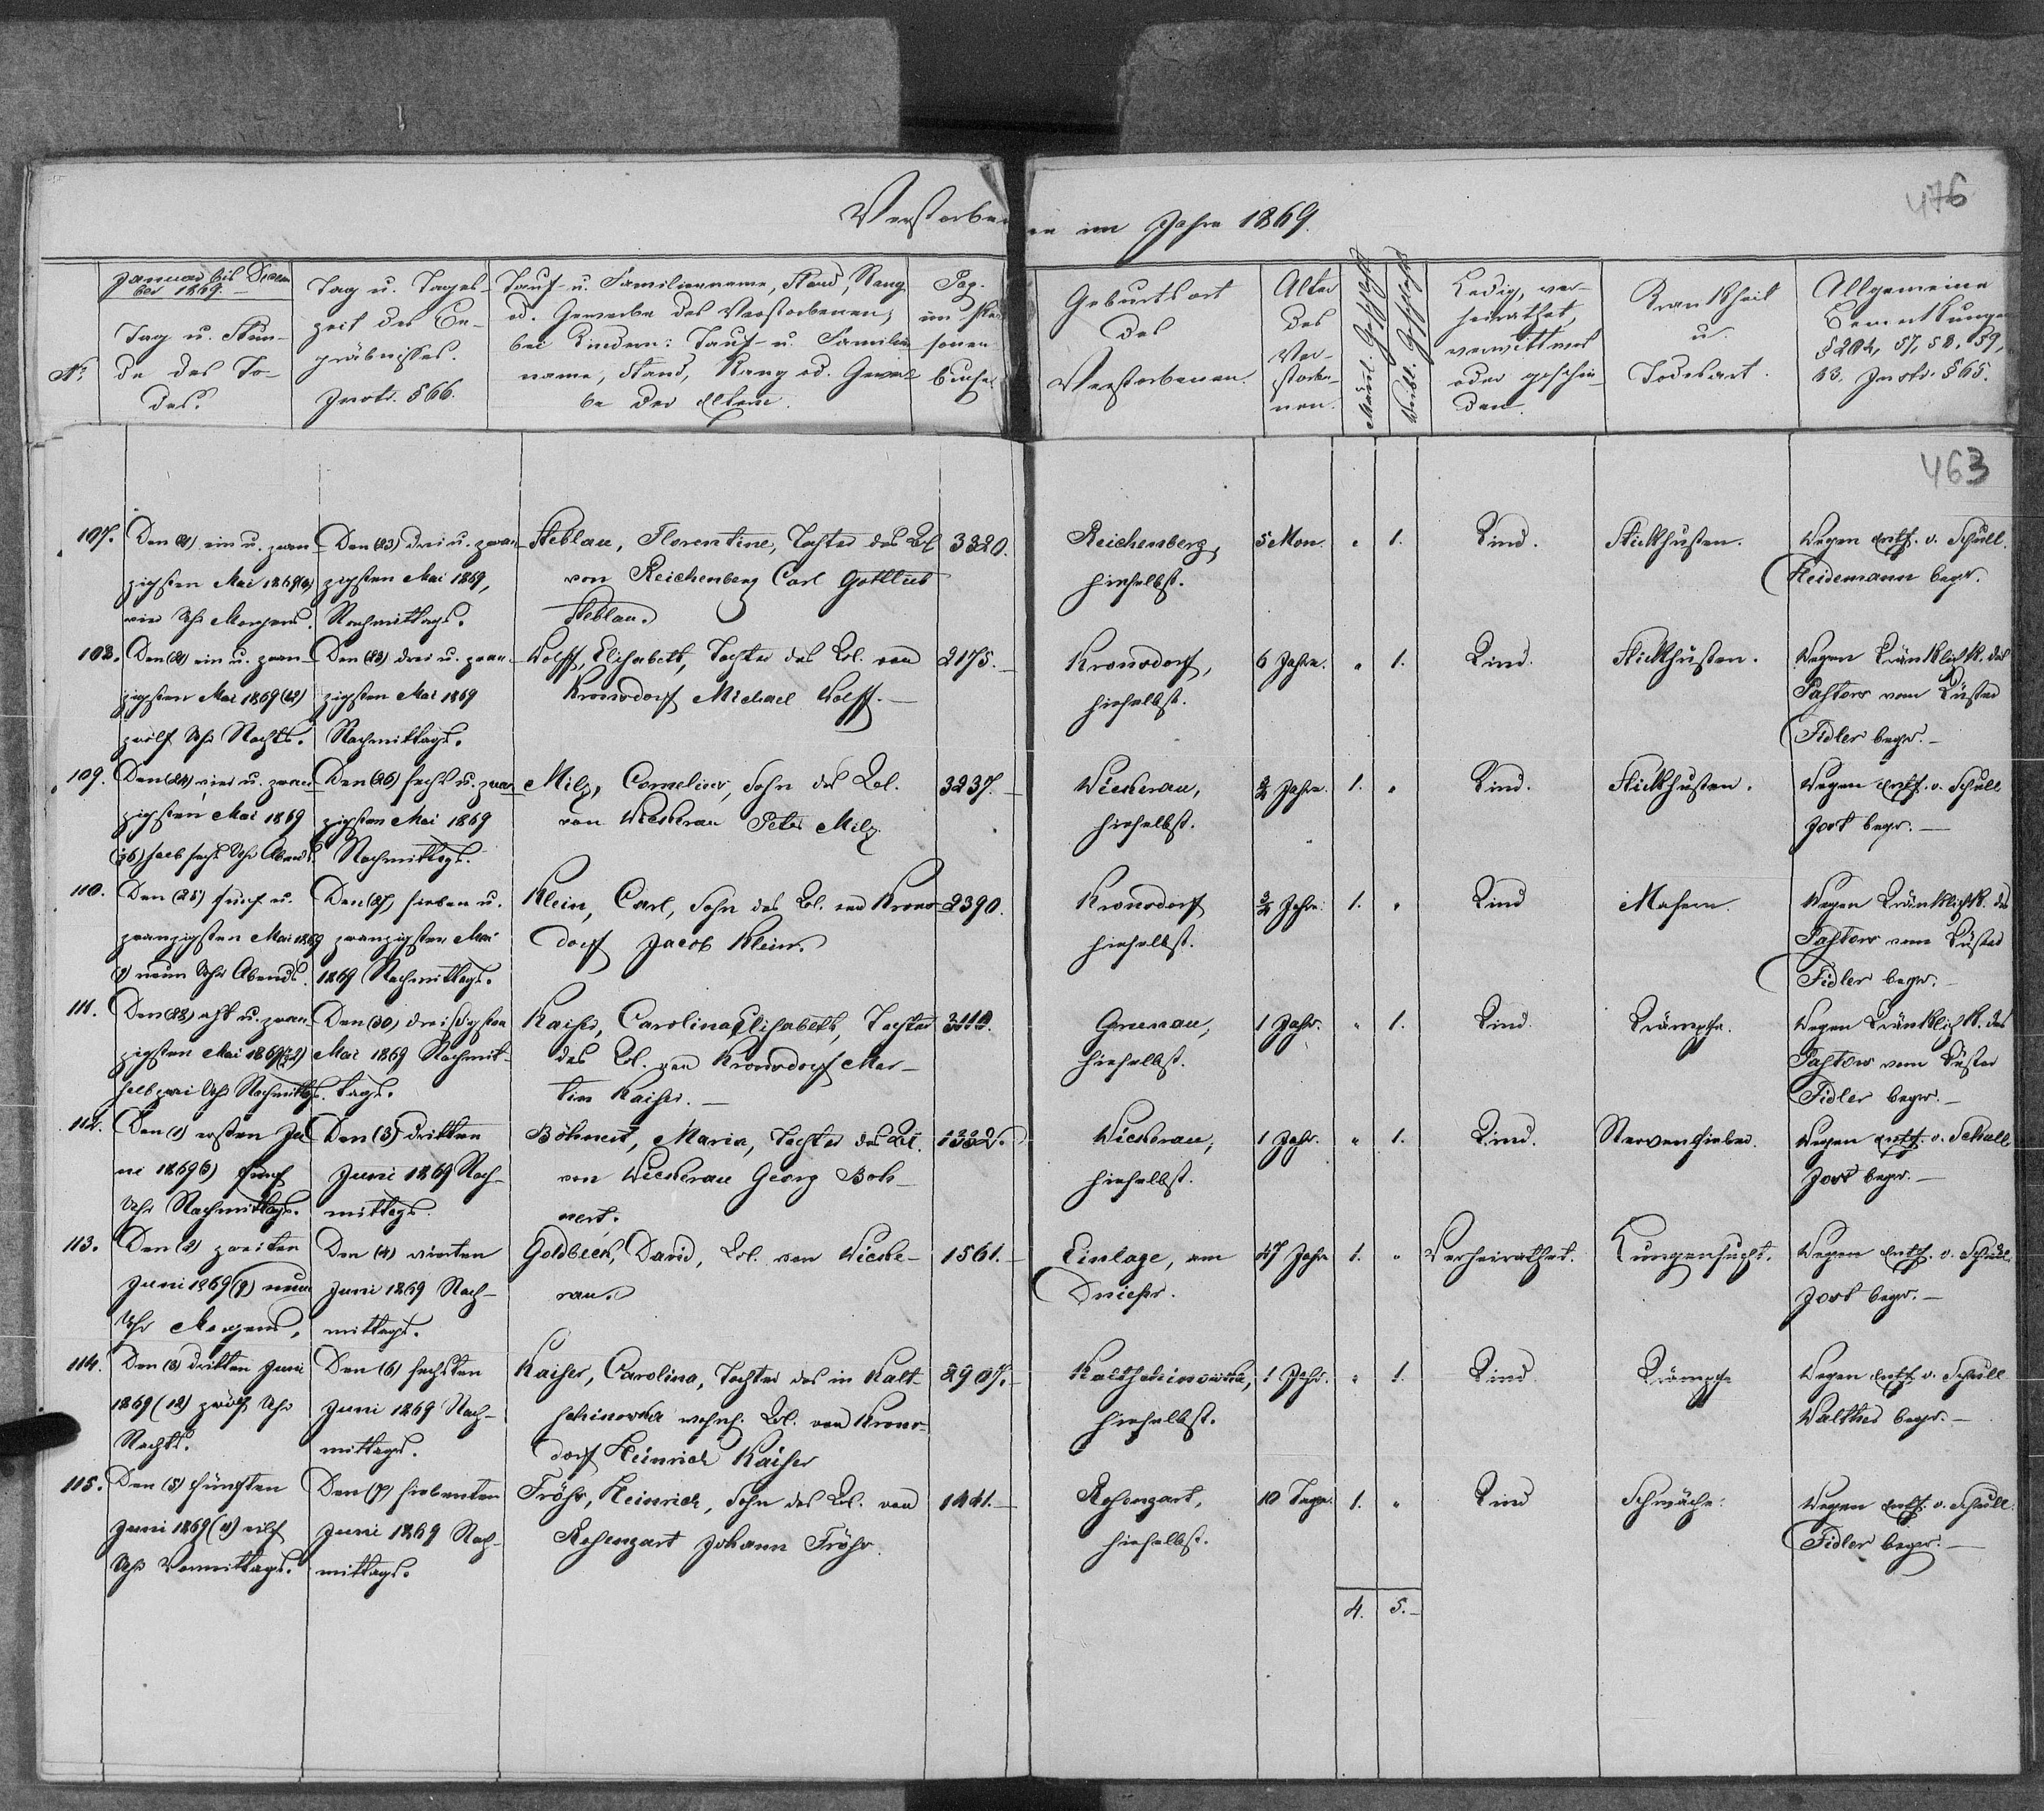 476
Verstorbenen im Jahre 1869.
No.
Januar bis Decem
ber 1869.
Tag u. Stun-
de des To-
des.
Tag u. Tages-
zeit des Be-
gräbnisses.
Instr. § 66.
Tauf- u. Familienname, Stand, Rang
od. Gewerbe des Verstorbenen;
bei Kindern: Tauf- u. Familien
name, Stand, Rang od. Gewer-
be der Eltern.
Pag.
im Per
sonen
buche
Geburtsort
des
Verstorbenen.
Alter
des
Ver-
storbe-
nen.
Männl. Geschlecht
Weibl. Geschlecht
Ledig, ver-
heirathet,
verwittwet
oder geschie-
den.
Krankheit
u.
Todesart.
Allgemeine
Bemerkungen
57, 58, 59,
63. Instr. § 65.
463
107.
Den (21) ein u. zwan
zigsten Mai 1869 (4)
vier Uhr Morgens.
Den (23) drei u. zwan
zigsten Mai 1869,
Nachmittags.
Steblau, Florentine, Tochter des Col.
von Reichenberg Carl Gottlieb
Steblau.
3320.
Reichenberg,
hieselbst.
5 Mon.
"
1.
Kind.
Stickhusten.
Wegen Entf. v. Schull.
Heidemann begr.
108.
Den (21) ein u. zwan-
zigsten Mai 1869 (12)
zwölf Uhr Nachts.
Den (23) drei u. zwan-
zigsten Mai 1869
Nachmittags.
Wolff, Elisabeth, Tochter des Col. von
Kronsdorf Michael Wolff. —
2175. —
Kronsdorf,
hieselbst.
6 Jahre.
"
1.
Kind.
Stickhusten.
Wegen Kränklichk. des
Pastors vom Küster
Fidler begr. —
109.
Den (24) vier u. zwan
zigsten Mai 1869
halb sechs Uhr Abends.
Den (26) sechs u. zwan
zigsten Mai 1869
Nachmittags.
Milz, Cornelius, Sohn des Col.
von Wickerau Peter Milz.
3237. —
Wickerau,
hieselbst.
Jahre.
1.
"
Kind.
Stickhusten.
Wegen Entf. v. Schull
Jost begr. —
110.
Den (25) fünf u.
zwanzigsten Mai 1869
(9) neun Uhr Abends.
Den (27) sieben u.
zwanzigsten Mai
1869 Nachmittags.
Klein, Carl, Sohn des Col. von Krons
dorf Jacob Klein.
2390.
Kronsdorf
hieselbst.
Jahre.
1.
"
Kind
Masern.
Wegen Kränklichk. des
Pastors vom Küster
Fidler begr. —
111.
Den (28) acht u. zwan
zigsten Mai 1869
halb zwei Uhr Nachmittgs.
Den (30) dreißigsten
Mai 1869 Nachmit-
tags.
Kaiser, Carolina Elisabeth, Tochter
des Col. von Kronsdorf Mar-
tin Kaiser. —
Grunau,
hieselbst.
1 Jahr.
"
1.
Kind.
Krämpfe.
Wegen Kränklichk. des
Pastors vom Küster
Fidler begr. —
112.
Den (1) ersten Ju
ni 1869 (5) fünf
Uhr Nachmittags.
Den (3) dritten
Juni 1869 Nach-
mittags.
Böhnert, Maria, Tochter des Col.
von Wickerau Georg Böh-
nert.
Wickerau,
hieselbst.
1 Jahr.
"
1.
Kind.
Nervenfieber.
Wegen Entf. v. Schull
Jost begr. —
113.
Den (2) zweiten
Juni 1869 (9) neun
Uhr Morgens,
Den (4) vierten
Juni 1869 Nach-
mittags.
Goldbeck, David, Col. von Wicke-
rau.
1561. —
Einlage, am
Dniepr.
47 Jahr
1.
"
Verheirathet.
Lungensucht.
Wegen Entf. v. Schull.
Jost begr. —
114.
Den (3) dritten Juni
1869 (12) zwölf Uhr
Nachts.
Den (6) sechsten
Juni 1869 Nach-
mittags.
Kaiser, Carolina, Tochter des in Kalt-
schinowka wohnh. Col. von Krons-
dorf Heinrich Kaiser
2907. —
Kaltschinowka,
hieselbst.
1 Jahr.
"
1.
Kind
Krämpfe
Wegen Entf. v. Schull
Walther begr. —
115.
Den (5) fünften
Juni 1869 (11) elf
Uhr Vormittags.
Den (7) siebenten
Juni 1869 Nach-
mittags.
Fröhr, Heinrich, Sohn des Col. von
Rosengart Johann Fröhr.
1441. —
Rosengart,
hieselbst.
10 Tage.
1.
"
Kind
Schwäche.
Wegen Entf. v. Schull.
Fidler begr. —
4.
5. —